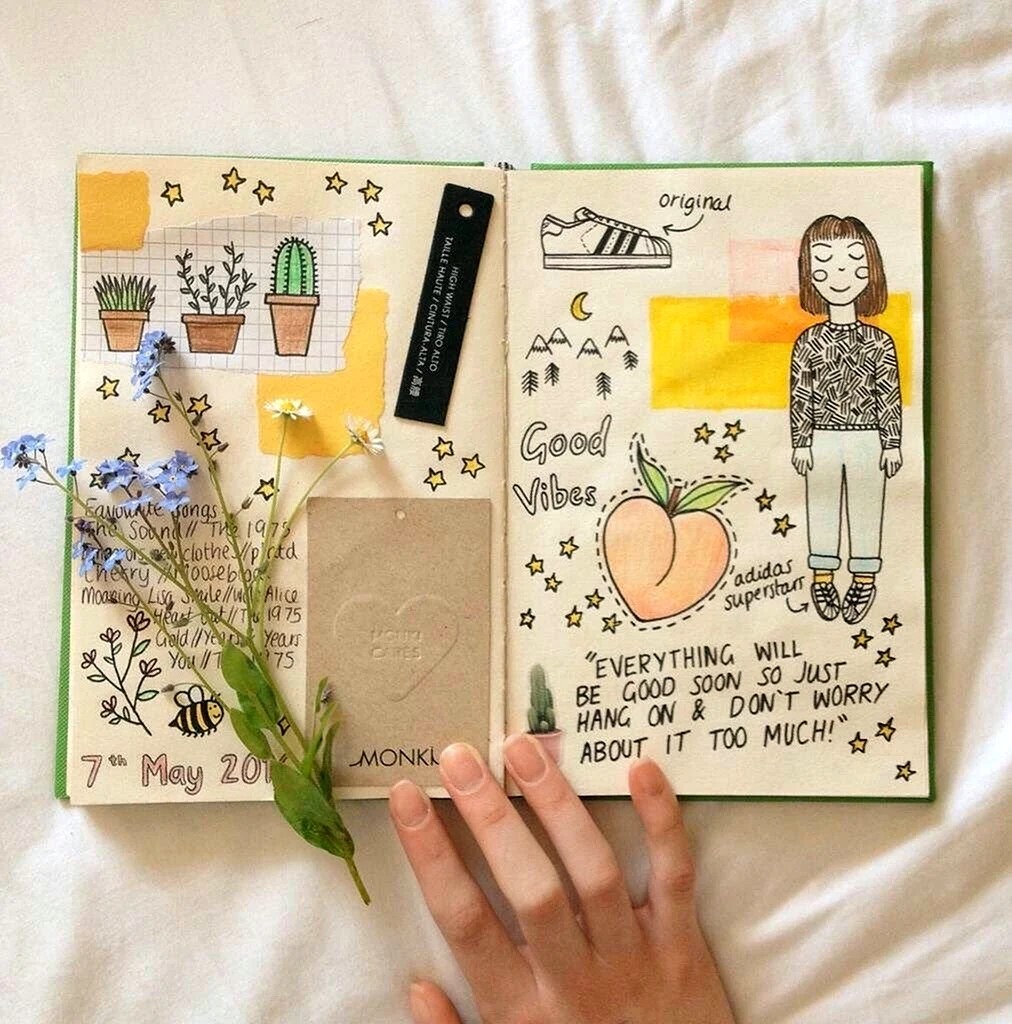 HIGH WAIST / TIRO ALTO
TAILLE HAUTE / CINTURA ALTA / 高腰
Favourite songs:
The Sound // The 1975
clothes //
Cherry // Moose
Moaning Lisa Smile // Wolf Alice
Heart Out // The 1975
Gold // Years & Years
You // The 1975
MONKI
CARES
MONKI
7th May
original
Good
Vibes
adidas
superstars
"EVERYTHING WILL
BE GOOD SOON SO JUST
HANG ON & DON'T WORRY
ABOUT IT TOO MUCH!"